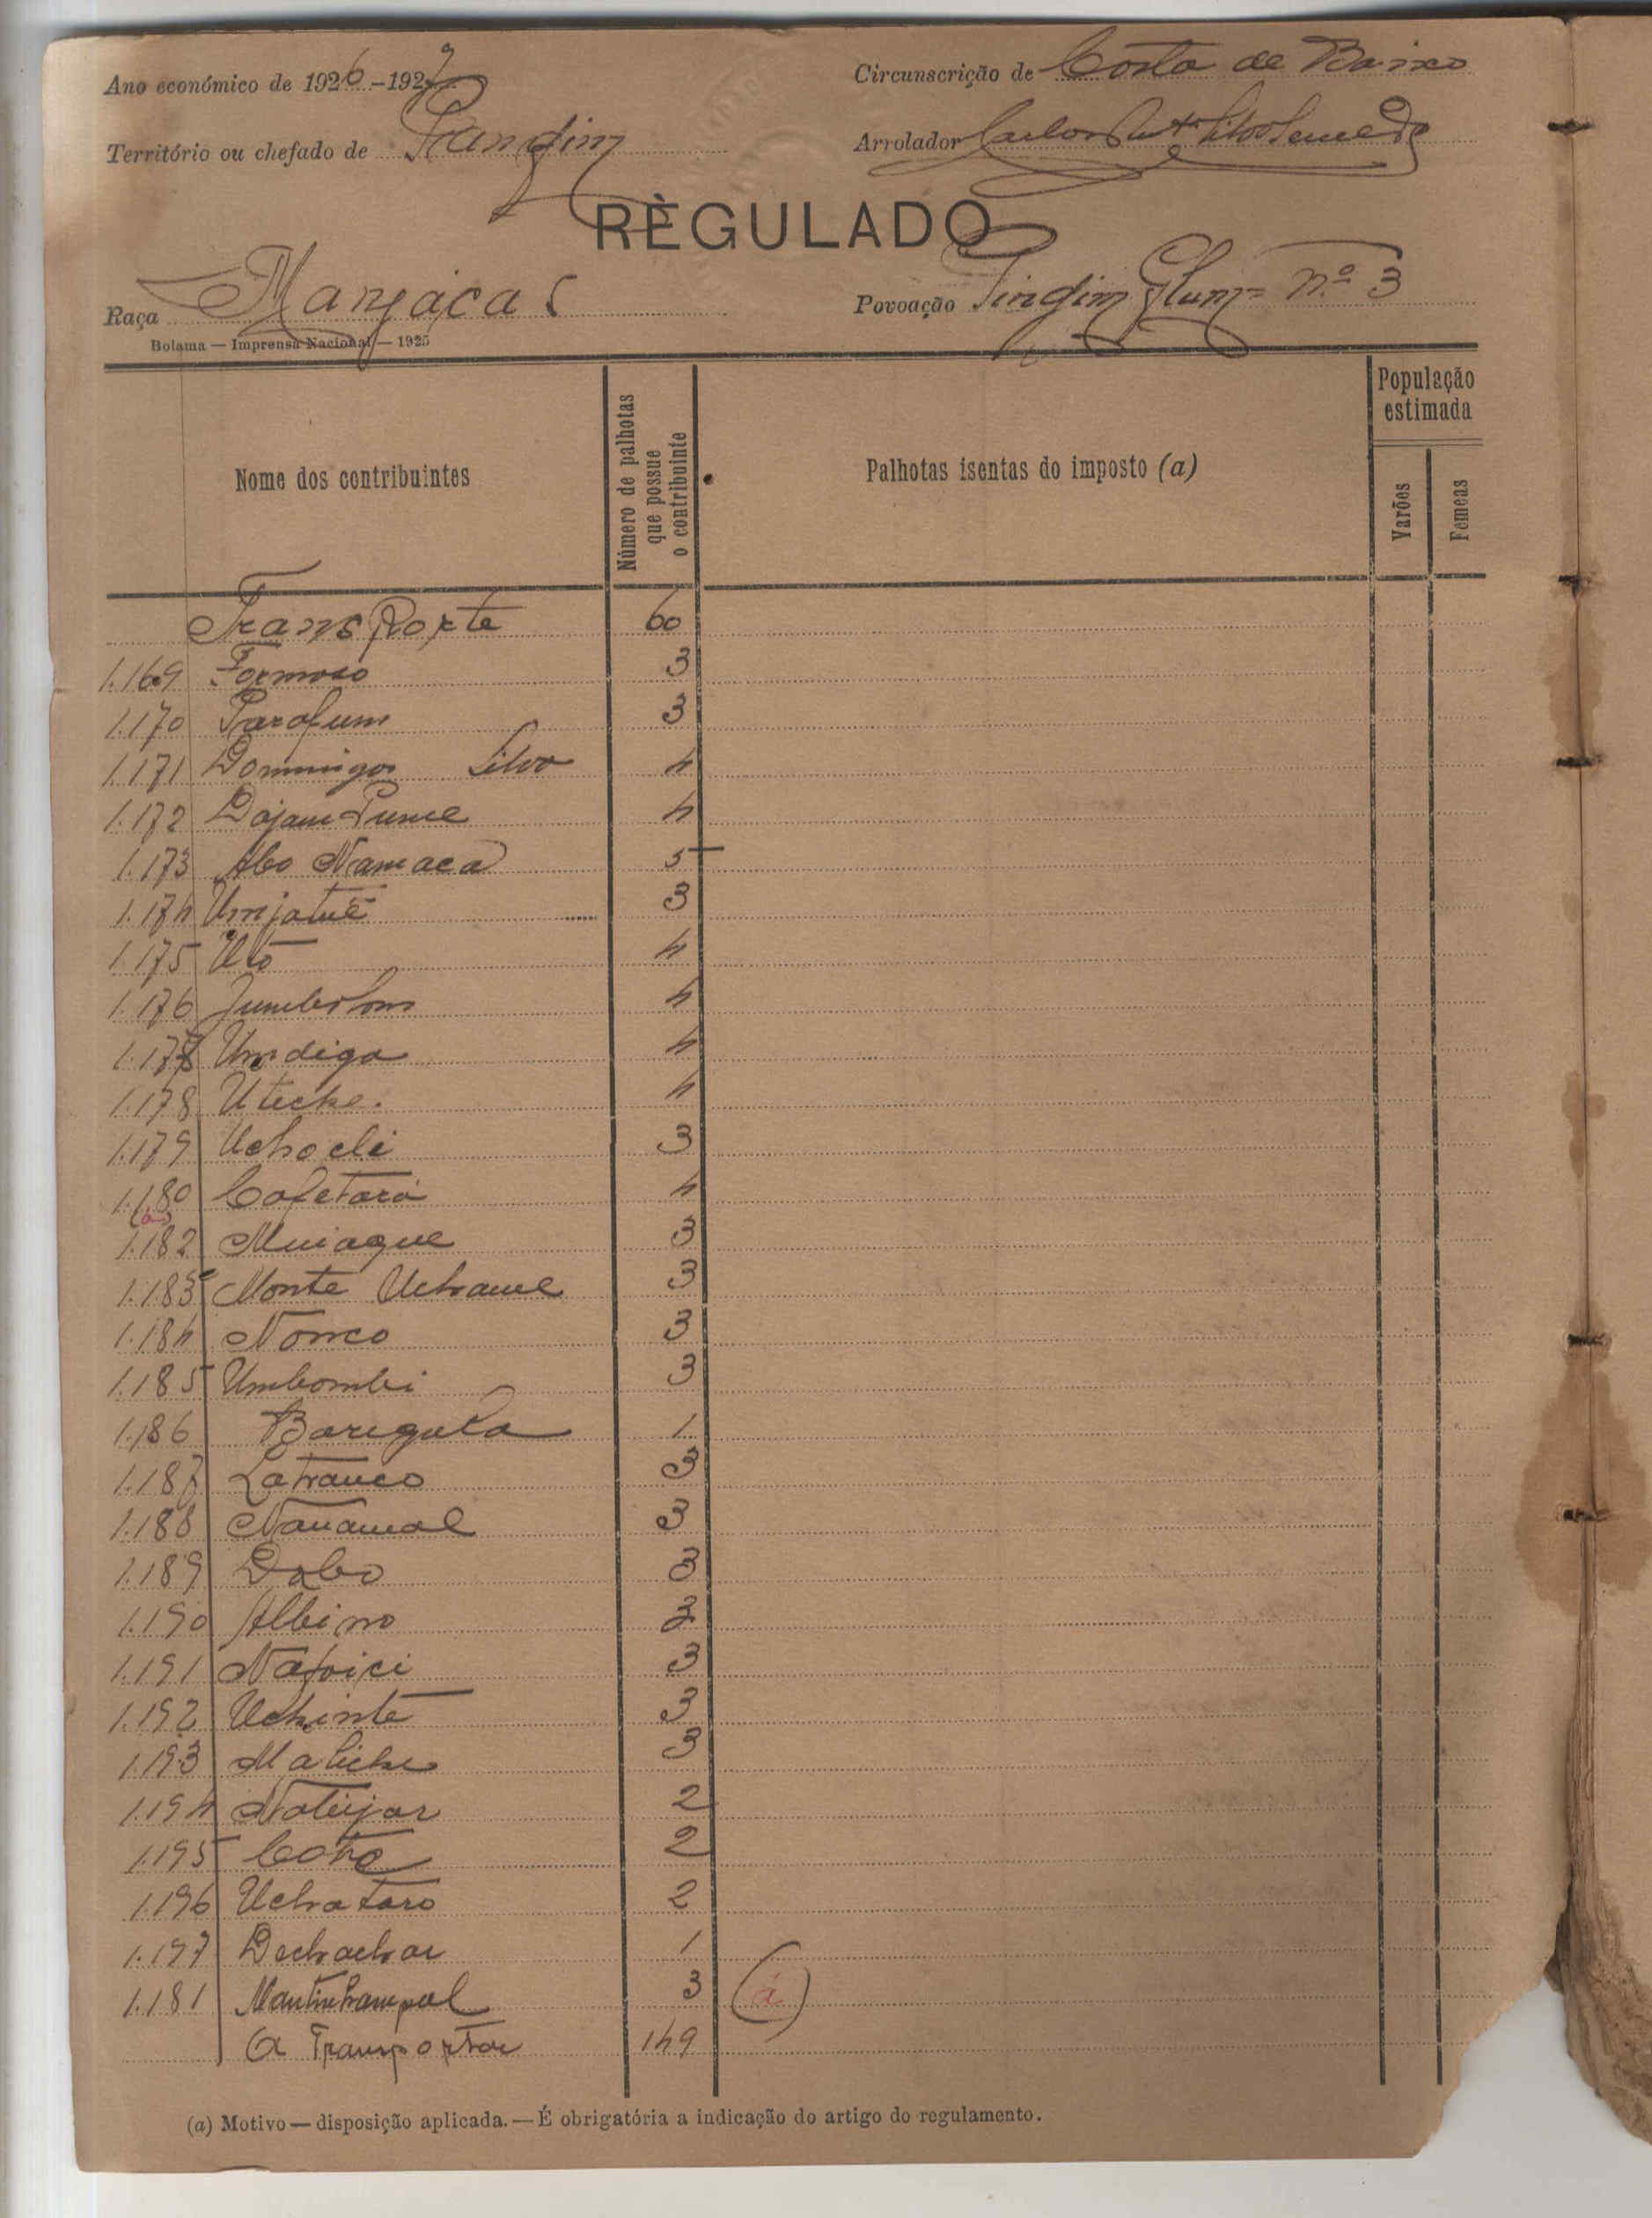 Ano económico de 1926-1927
Circunscrição de Costa de Baixo
Território ou chefado de Pandim
Arrolador Carlos
REGULADO
Raça Manjacas
Povoação Tindim Glum = nº 3
Bolama — Imprensa Nacional — 1925
Nome dos contribuintes
Número de palhotas que possue o contribuinte
Palhotas isentas do imposto (a)
População estimada
Varões
Femeas
Transporte 60
1.169 Formoso 3
1.170 Parofum 3
1.171 Domingos Silva 4
1.172 Dojam Pume 4
1.173 Abo Namaca 5
1.174 Umjatué 3
1.175 Utó 4
1.176 Jumbolom 4
1.177 Undiga 4
1.178 Uteche. 4
1.179 Uchocli 3
1.180 Cafetará 4
(a)
1.182 Muiaque 3
1.183 Monte Uchame 3
1.184 Nomco 3
1.185 Umbombi 3
1.186 Barigula 1
1.187 Catranco 3
1.188 Nanamal 3
1.189 Dabo 3
1.190 Albino 3
1.191 Nafoici 3
1.192 Uchinte 3
1.193 Matiche 3
1.194 Notiijar 2
1.195 Coto 2
1.196 Uchataro 2
1.197 Dechachar 1
1.181 3 (á)
A Transportar 149
(a) Motivo — disposição aplicada. — É obrigatória a indicação do artigo do regulamento.